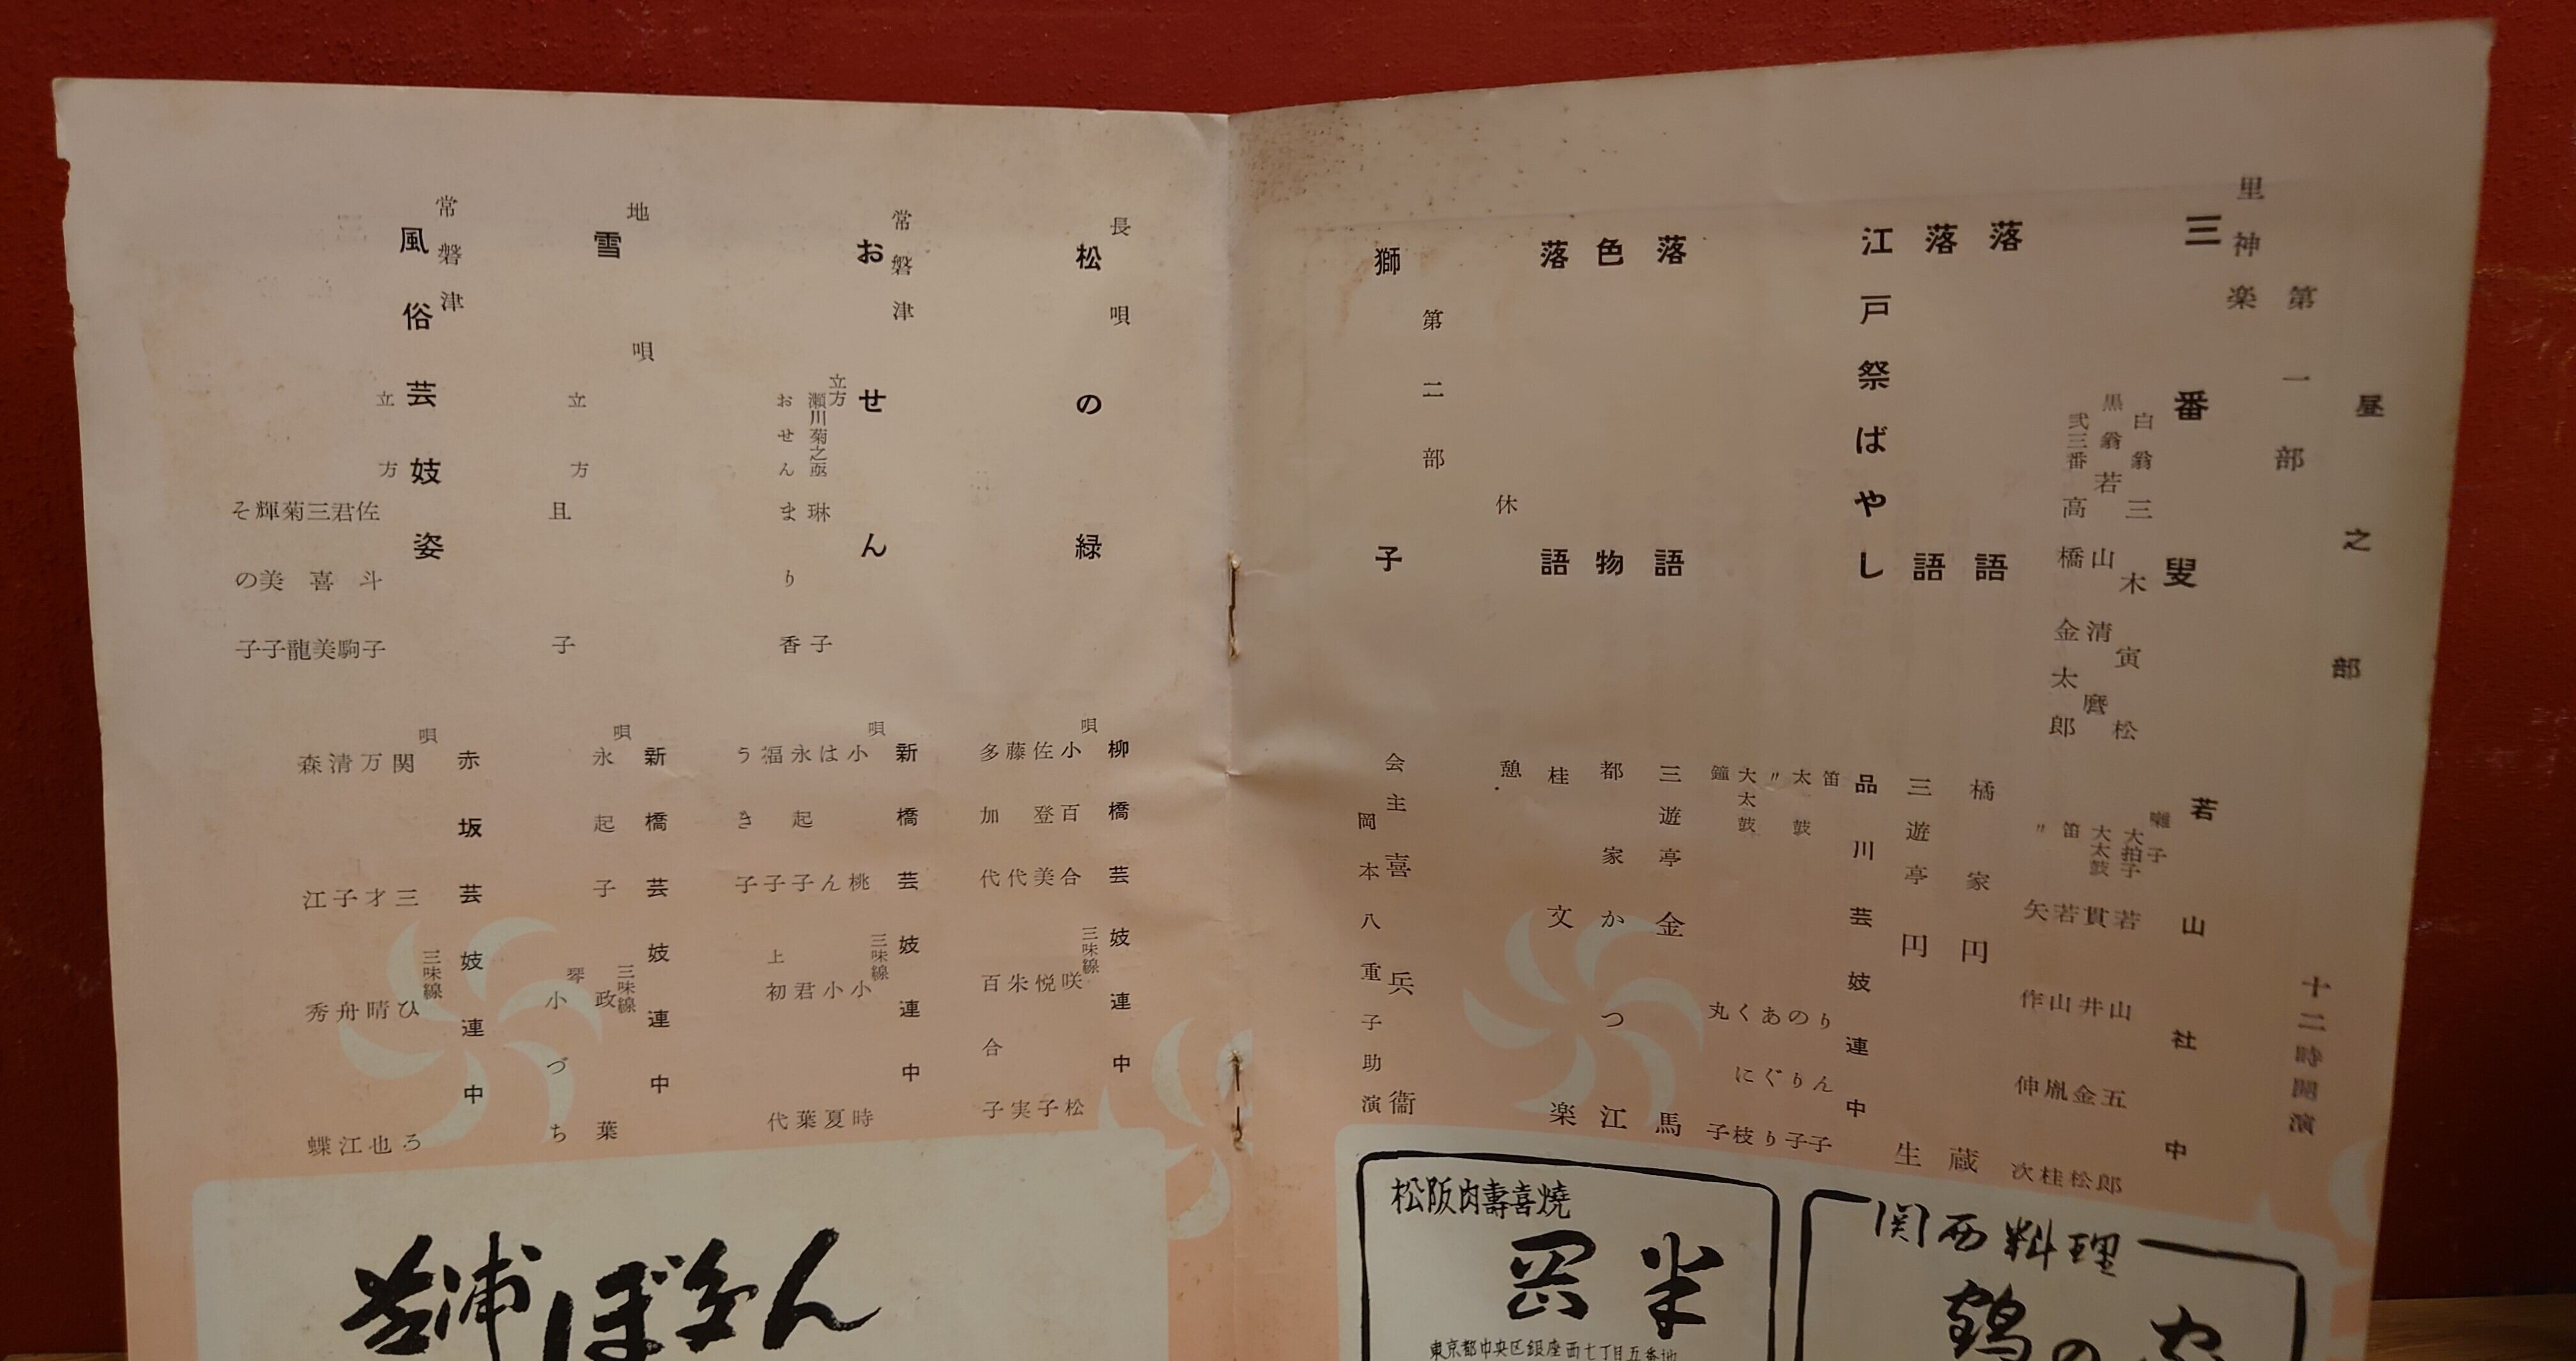 昼之部
十二時開演
第一部
里神楽
三番叟 若山社中
白翁 三木寅松
黒翁 若山清麿
弐三番 高橋金太郎
囃子
大拍子 若山五郎
大太鼓 貫井金松
笛 若山胤桂
〃 矢作伸次
落語 橘家円蔵
落語 三遊亭円生
江戸祭ばやし 品川芸妓連中
笛 りん子
太鼓 のり子
〃 あぐり
大太鼓 くに枝
鐘 丸子
落語 三遊亭金馬
色物 都家かつ江
落語 桂文楽
休憩
第二部
獅子 会主 喜兵衞
岡本八重子助演
関西料理
鶴の家
松阪肉壽喜焼
岡半
東京都中央区銀座西七丁目五番地
長唄
松の緑 柳橋芸妓連中
唄 小百合
佐登美
藤代
多加代
三味線 咲松
悦子
朱実
百合子
常磐津
おせん 新橋芸妓連中
立方
瀬川菊之丞 琳子
おせん まり香
唄 小桃
はん
永起子
福子
うき子
三味線 小時
小夏
君葉
上 初代
地唄
雪 新橋芸妓連中
立方 且子
唄 永起子
三味線 政葉
琴 小づち
常磐津
風俗芸妓姿 赤坂芸妓連中
立方 佐斗子
君駒
三喜美
菊龍
輝美子
その子
唄 関三
万才
清子
森江
三味線 ひろ
晴也
舟江
秀蝶
芝浦ぼたん